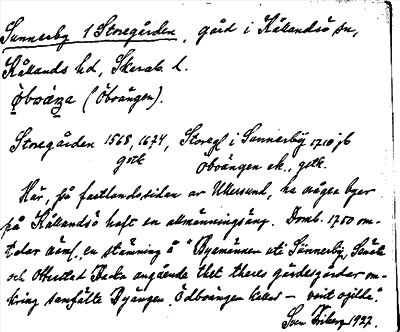 Sunnerby 1 Storegården, gård i Kållandsö sn,
Kållands hd, Skarab. l.
(Öbvängen).
Storegården 1568, 1674, Storegd i Sunnerby 1710 jb
Obvängen ek., geth.
Här, på fastlandssidan av Ullersund, ha några byar
på Kållandsö haft en allmänningsäng. Domb. 1750 om-
talar näml. en stämning å "Byamännen uti Sunnerby,
och Otterstad angående thet theres gärdesgårdar om-
kring samfälte Byängen, Odboängen kallad – varit ogilda".
Sven Ekberg 1927.